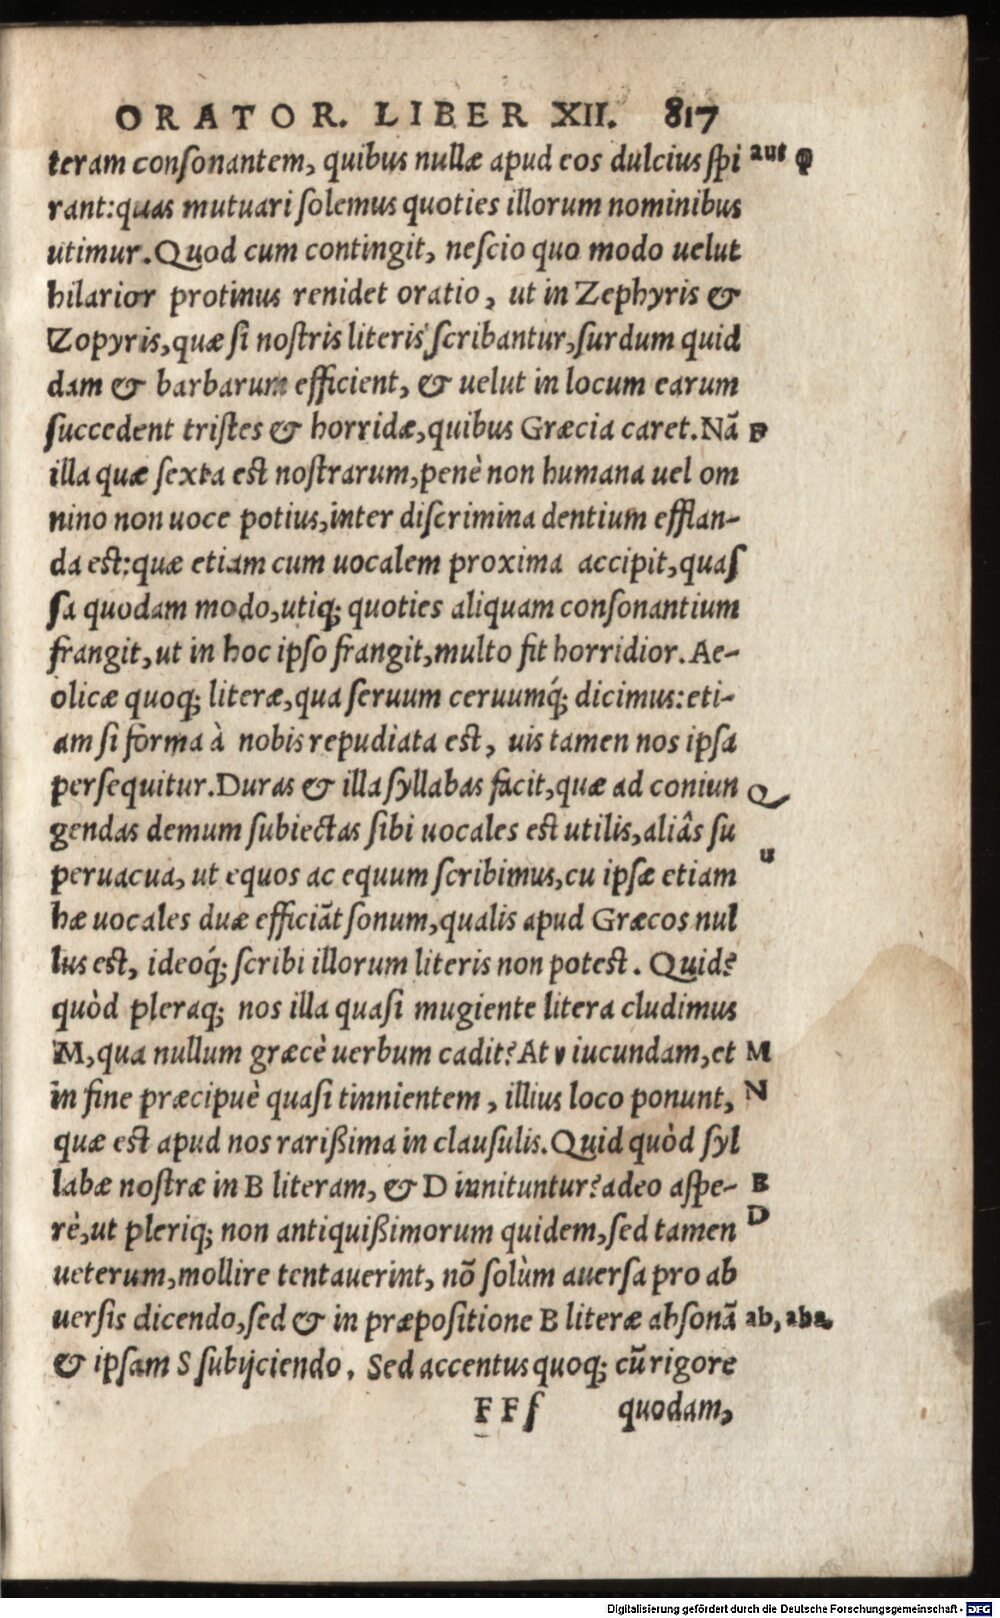 ORATOR. LIBER XII. 817
teram conſonantem, quibus nullæ apud eos dulcius ſpi aut φ
rant:quas mutuari ſolemus quoties illorum nominibus
utimur. Quod cum contingit, neſcio quo modo uelut
hilarior protinus renidet oratio, ut in Zephyris &
Zopyris,quæ ſi noſtris literis ſcribantur,ſurdum quid
dam & barbarum efficient, & uelut in locum earum
ſuccedent triſtes & horridæ,quibus Græcia caret.Nã F
illa quæ ſexta eſt noſtrarum,penè non humana uel om
nino non uoce potius,inter diſcrimina dentium efflan-
da eſt:quæ etiam cum uocalem proxima accipit,quaſ
ſa quodam modo,utiq; quoties aliquam conſonantium
frangit,ut in hoc ipſo frangit,multo fit horridior.Ae-
olicæ quoq; literæ,qua ſeruum ceruumq́; dicimus:eti-
am ſi forma à nobis repudiata eſt, uis tamen nos ipſa
perſequitur.Duras & illa ſyllabas facit,quæ ad coniun Q
gendas demum ſubiectas ſibi uocales eſt utilis,aliâs ſu
peruacua, ut equos ac equum ſcribimus,cu ipſæ etiam u
hæ uocales duæ efficiãt ſonum,qualis apud Græcos nul
lus eſt, ideoq́; ſcribi illorum literis non poteſt. Quid?
quòd pleraq; nos illa quaſi mugiente litera cludimus
M,qua nullum græcè uerbum cadit?At ν iucundam,et M
in fine præcipuè quaſi tinnientem, illius loco ponunt, N
quæ eſt apud nos rarißima in clauſulis. Quid quòd ſyl
labæ noſtræ in B literam, & D innituntur?adeo aſpe- B
rè,ut pleriq; non antiquißimorum quidem,ſed tamen D
ueterum,mollire tentauerint, nõ ſolùm auerſa pro ab
uerſis dicendo,ſed & in præpoſitione B literæ abſonã ab, abs.
& ipſam S ſubijciendo. Sed accentus quoq; cũ rigore
FFſ quodam,
Digitalisierung gefördert durch die Deutsche Forschungsgemeinschaft - DFG